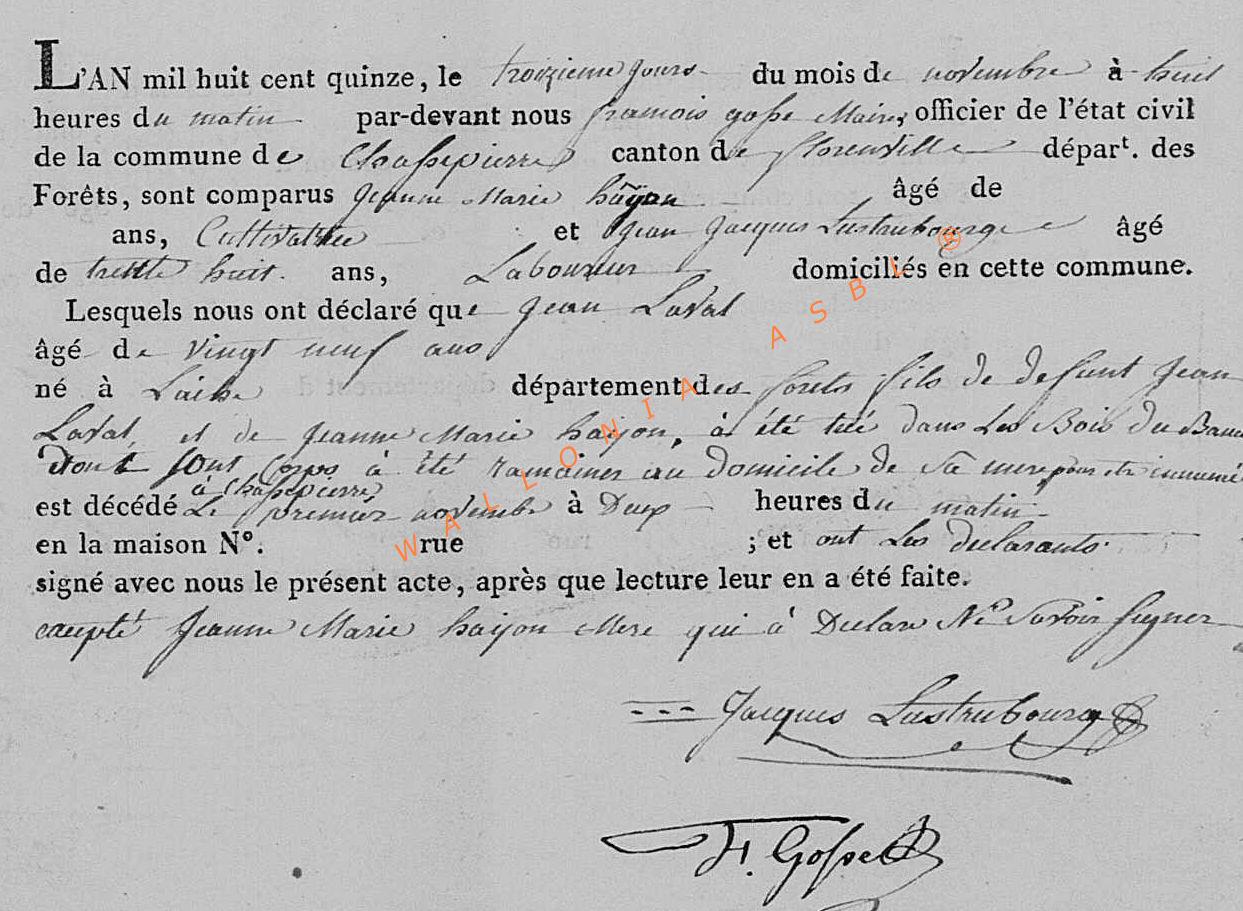 L'AN mil huit cent quinze, le troizieme jours du mois de novembre à huit
heures du matin par-devant nous framois gosse Maire, officier de l'état civil
de la commune de Chassepierre canton de florenville départ. des
Forêts, sont comparus Jeanne Marie haÿon âgé de
ans, Cultivatrice et Jean Jacques Lustrubourge âgé
de trente huit ans, Laboureur domiciliés en cette commune.
Lesquels nous ont déclaré que Jean Laval
âgé de vingt neuf ans
né à Laiche département des forets fils de defunt Jean
Laval, et de Jeanne Marie haÿon, à été tué dans Les Bois du Banc
dont sont Corps à été ramainer au domicile de Sa mere pour etre innumé
à Chassepierre
est décédé Le premier novembre à Deux heures du matin
en la maison N°. rue ; et ont Les declarants
signé avec nous le présent acte, après que lecture leur en a été faite.
exepté Jeanne Marie haÿon Mere qui à Declare Ne Savoir signer
Jacques Lustrubourg
F. Gosse
WALLONIA ASBL ®